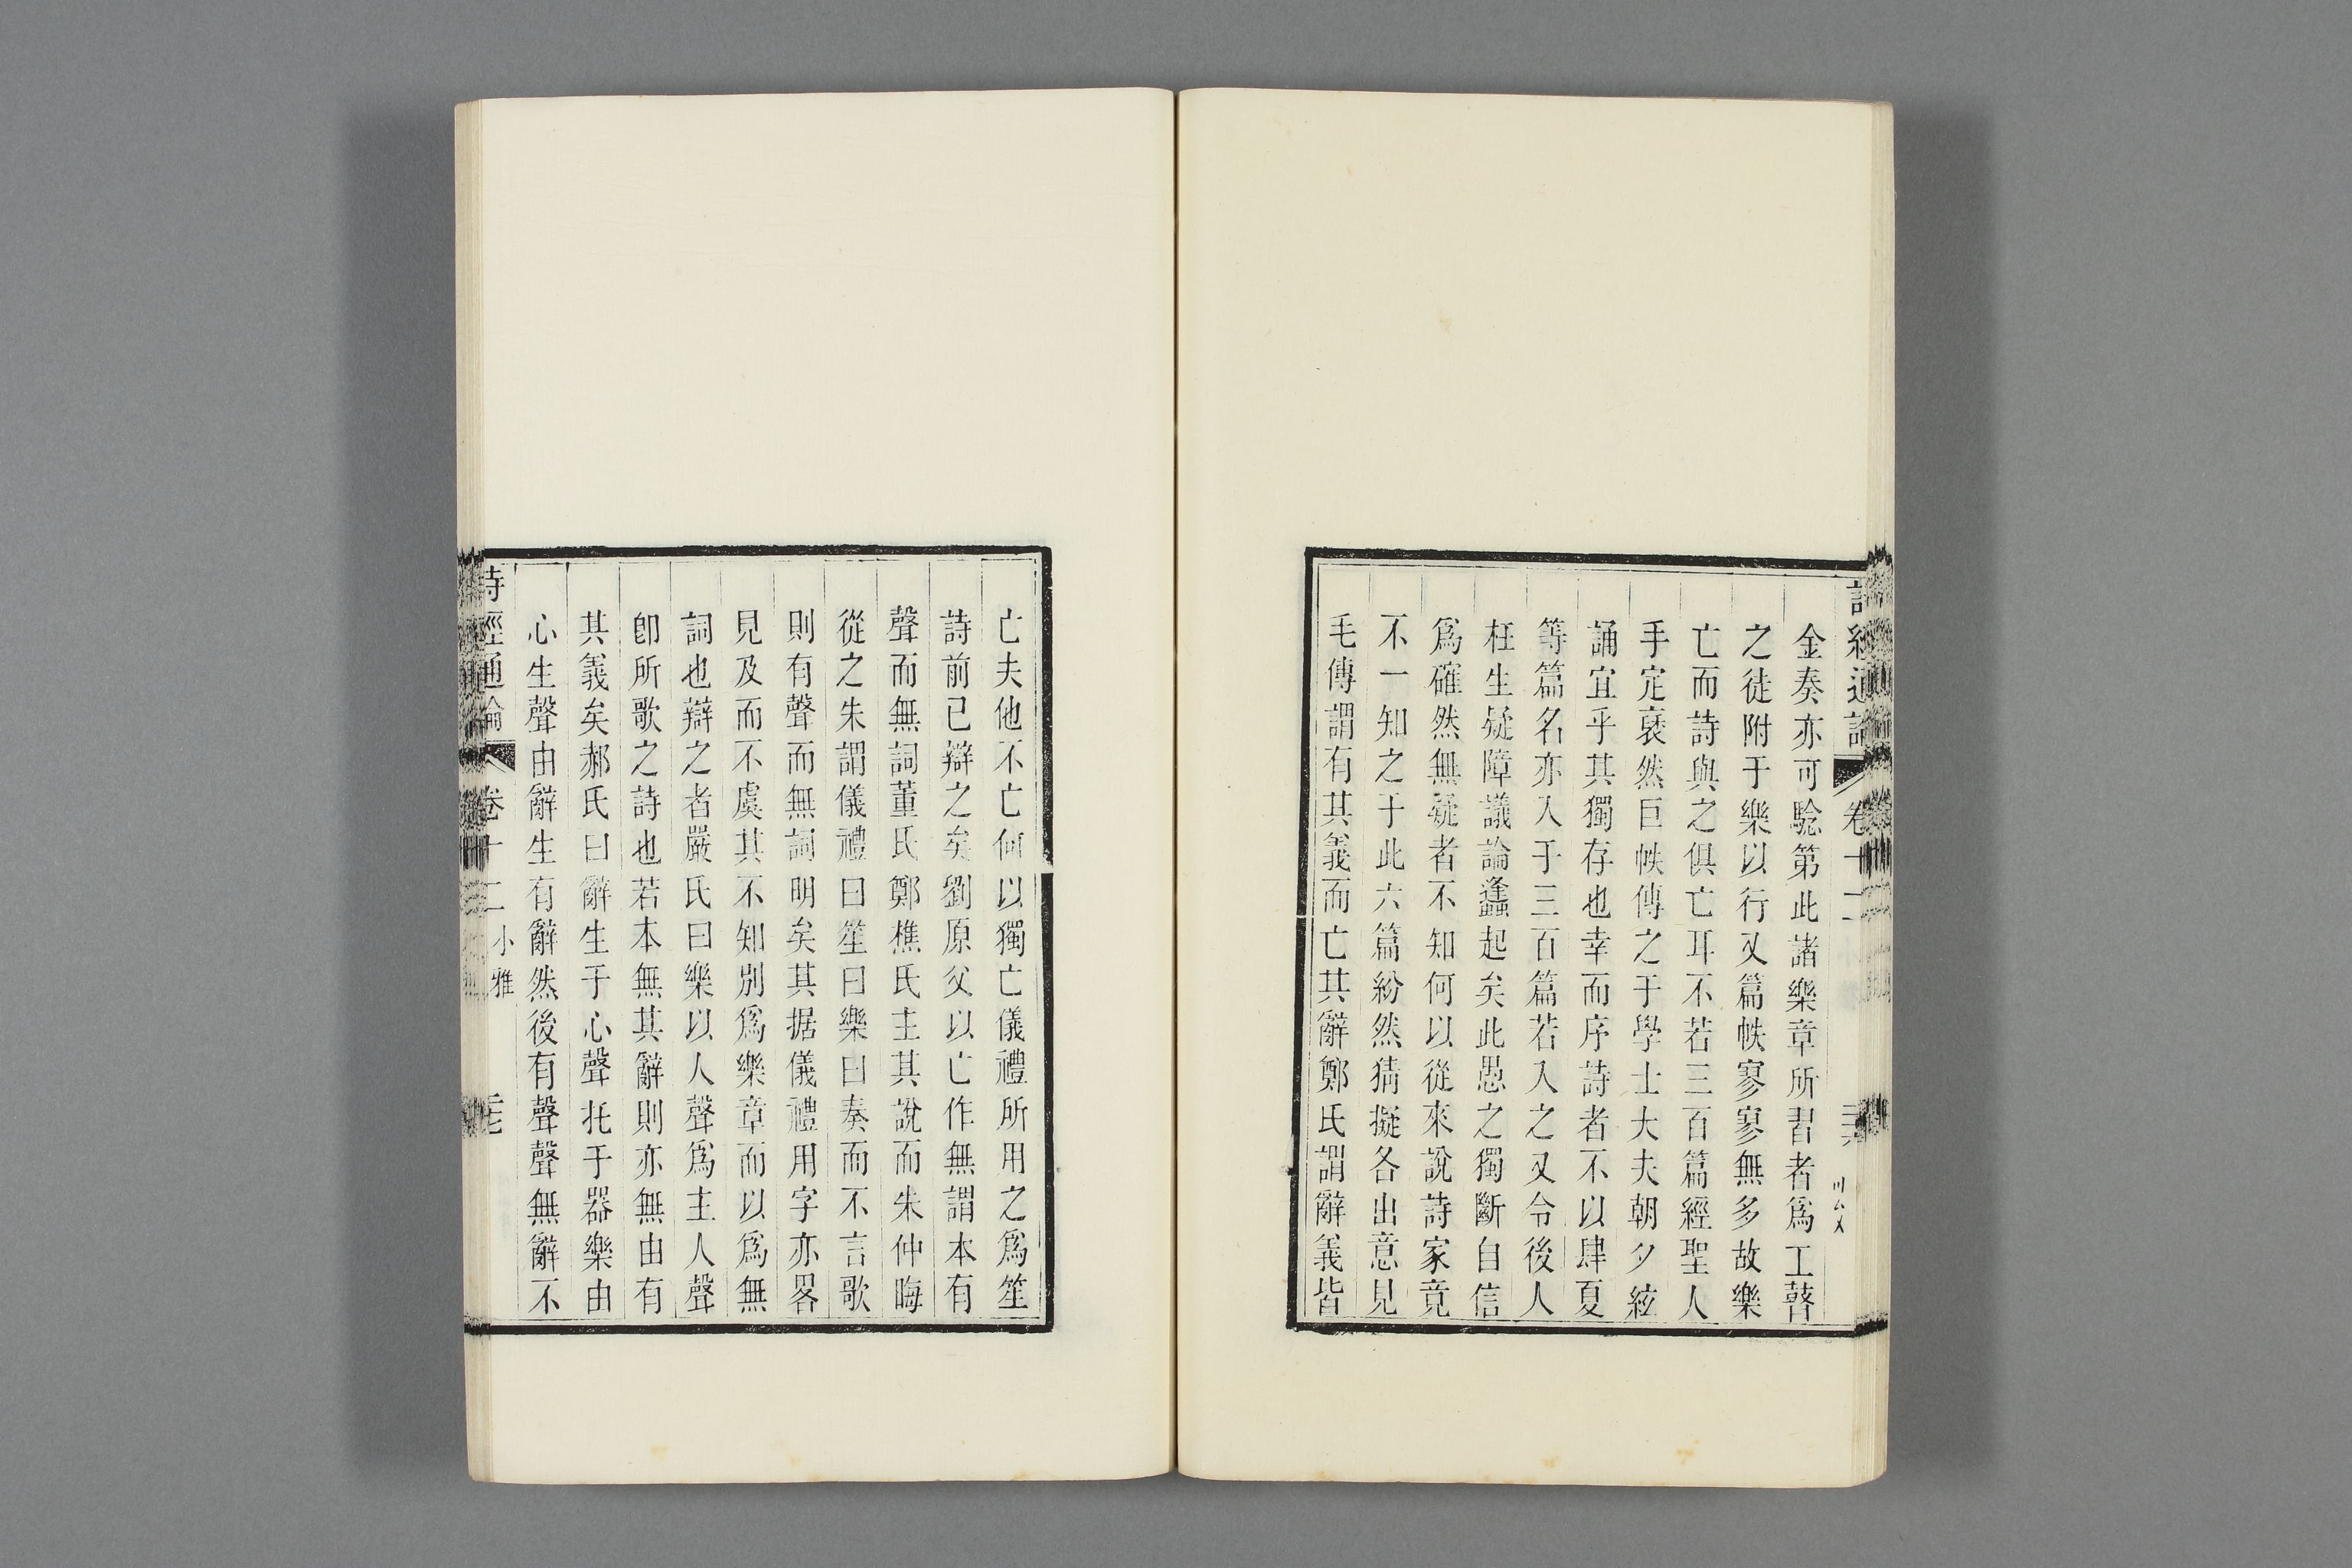 詩經通論 卷十二 三六
金奏亦可騐第此諸樂章所習者爲工瞽
之徒附于樂以行又篇帙寥寥無多故樂
亡而詩與之俱亡耳不若三百篇經聖人
手定裒然巨帙傳之于學士大夫朝夕絃
誦宜乎其獨存也幸而序詩者不以肆夏
等篇名亦入于三百篇若入之又令後人
枉生疑障議論蠭起矣此愚之獨斷自信
爲確然無疑者不知何以從來說詩家竟
不一知之于此六篇紛然猜擬各出意見
毛傳謂有其義而亡其辭鄭氏謂辭義皆
亡夫他不亡何以獨亡儀禮所用之爲笙
詩前已辯之矣劉原父以亡作無謂本有
聲而無詞董氏鄭樵氏主其說而朱仲晦
從之朱謂儀禮曰笙曰樂曰奏而不言歌
則有聲而無詞明矣其据儀禮用字亦畧
見及而不虞其不知別爲樂章而以爲無
詞也辯之者嚴氏曰樂以人聲爲主人聲
卽所歌之詩也若本無其辭則亦無由有
其義矣郝氏曰辭生于心聲托于器樂由
心生聲由辭生有辭然後有聲聲無辭不
詩經通論 卷十二 小雅 三七